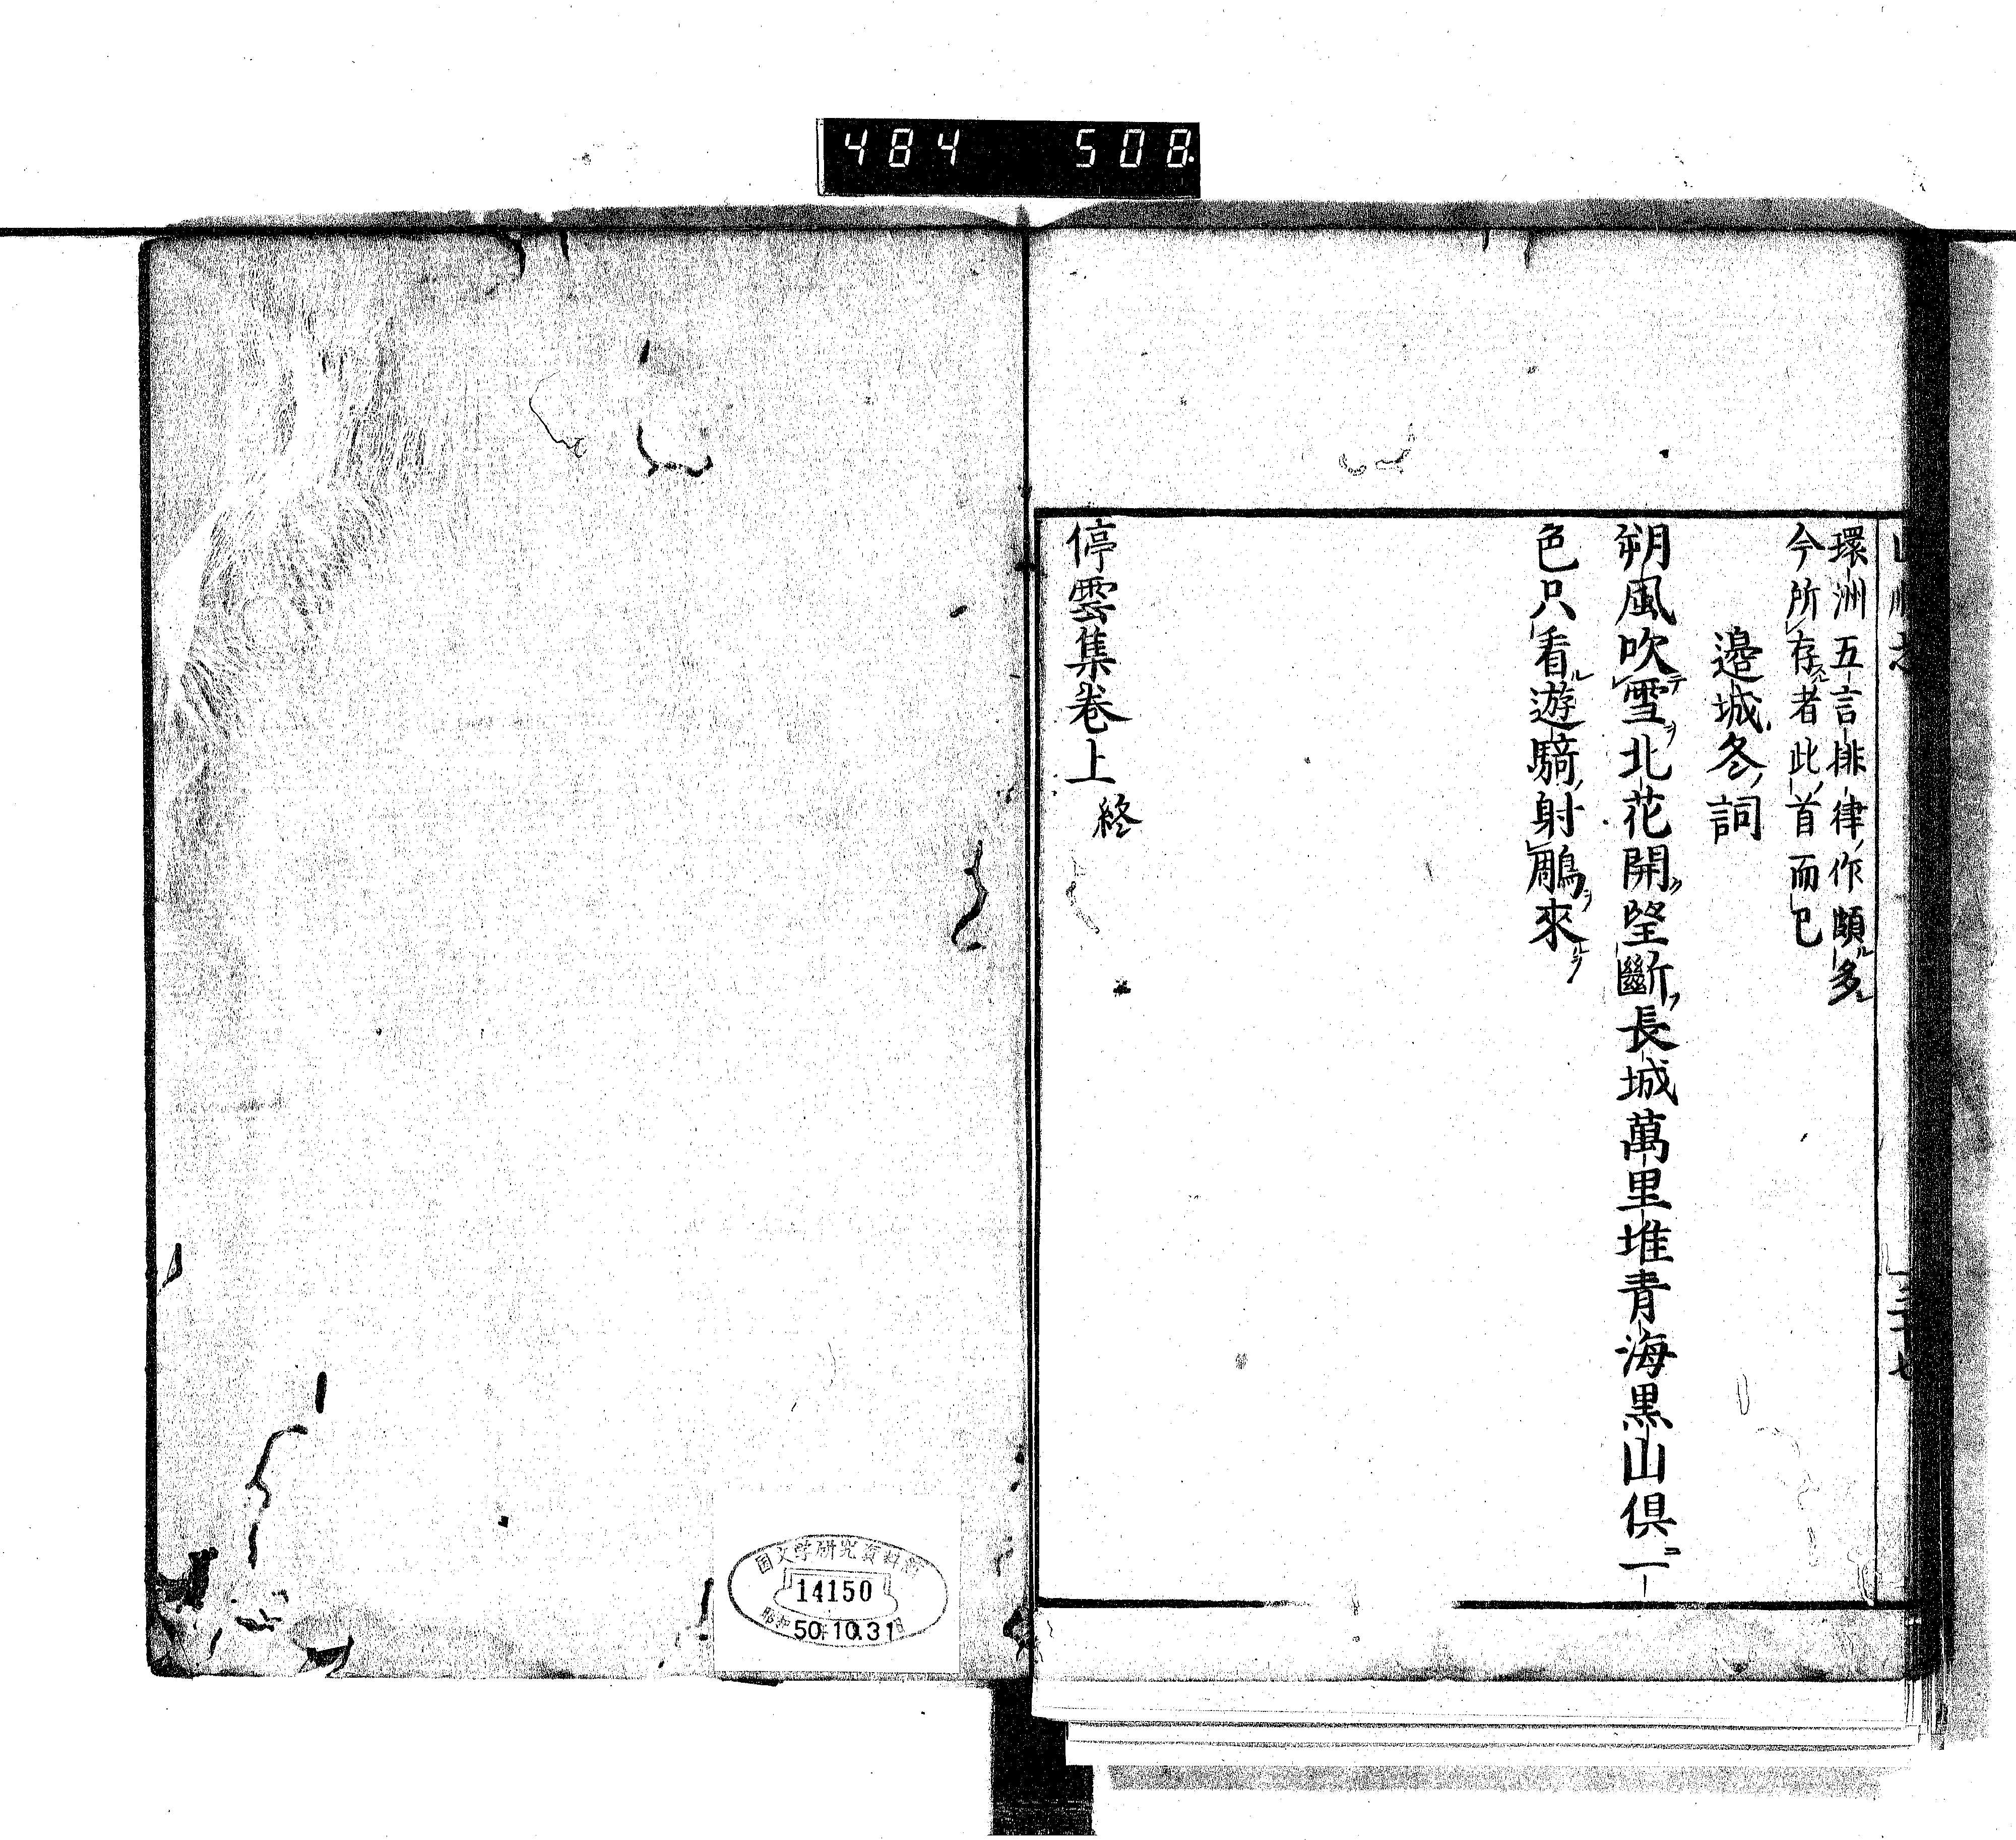 484 508
環洲五言排律作頗多
今所存者此首而已
邉城冬詞
朔風吹雪北花開望斷長城萬里堆青海黒山倶一
色只看遊騎射鵰來
停雲集卷上終
国文学研究資料館
14150
50.10.31